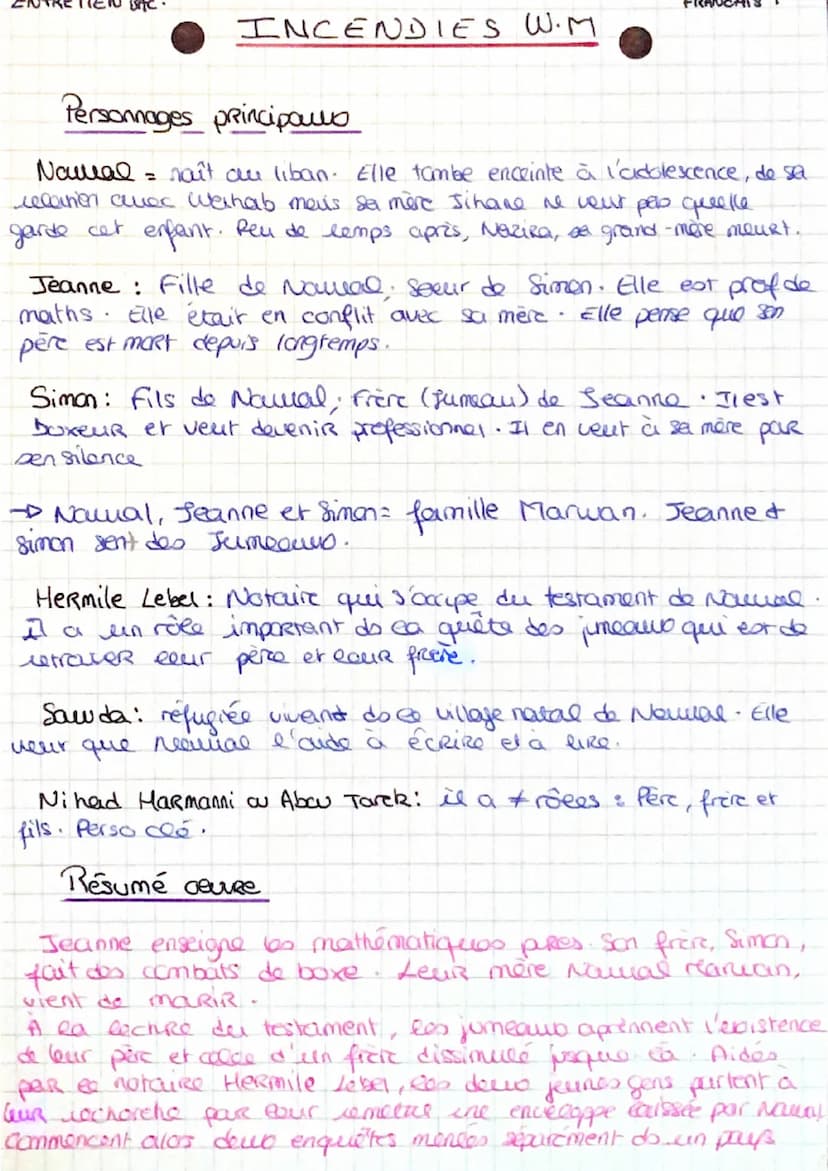 ENTRETIEN BAC.
FRANCAIS :
INCENDIES W.M
Personnages principaux
Nawal = naît au liban. Elle tombe enceinte à l'adolescence, de sa
relation avec Wahab mais sa mère Jihane ne veut pas quelle
garde cet enfant. Peu de temps après, Nazira, sa grand-mère meurt.
Jeanne : Fille de Nawal, soeur de Simon. Elle est prof de
maths. Elle était en conflit avec sa mère. Elle pense que son
père est mort depuis longtemps.
Simon : Fils de Nawal, frère (jumeau) de Jeanne. Il est
boxeur et veut devenir professionnel. Il en veut à sa mère par
son silence
→ Nawal, Jeanne et Simon = famille Marwan. Jeanne et
Simon sont des Jumeaux.
Hermile Lebel : Notaire qui s'occupe du testament de Nawal.
Il a un rôle important ds la quête des jmeaux qui est de
retrouver leur père et leur frère.
Sawda : réfugiée vivant ds le village natal de Nawal. Elle
veut que Nawal l'aide à écrire et à lire.
Nihad Harmanni ou Abou Tarek : il a ≠ rôles : Père, frère et
fils. Perso clé.
Résumé œuvre
Jeanne enseigne les mathématiques pures. Son frère, Simon,
fait des combats de boxe. Leur mère Nawal Marwan,
vient de marir.
A la lecture du testament, les jumeaux aprennent l'existence
de leur père et celle d'un frère dissimulé jusque là. Aidés
par le notaire Hermile Lebel, les deux jeunes gens partent à
leur recherche pour leur remettre une enveloppe laissée par Nawal
Commencent alors deux enquêtes menées séparément ds un pays